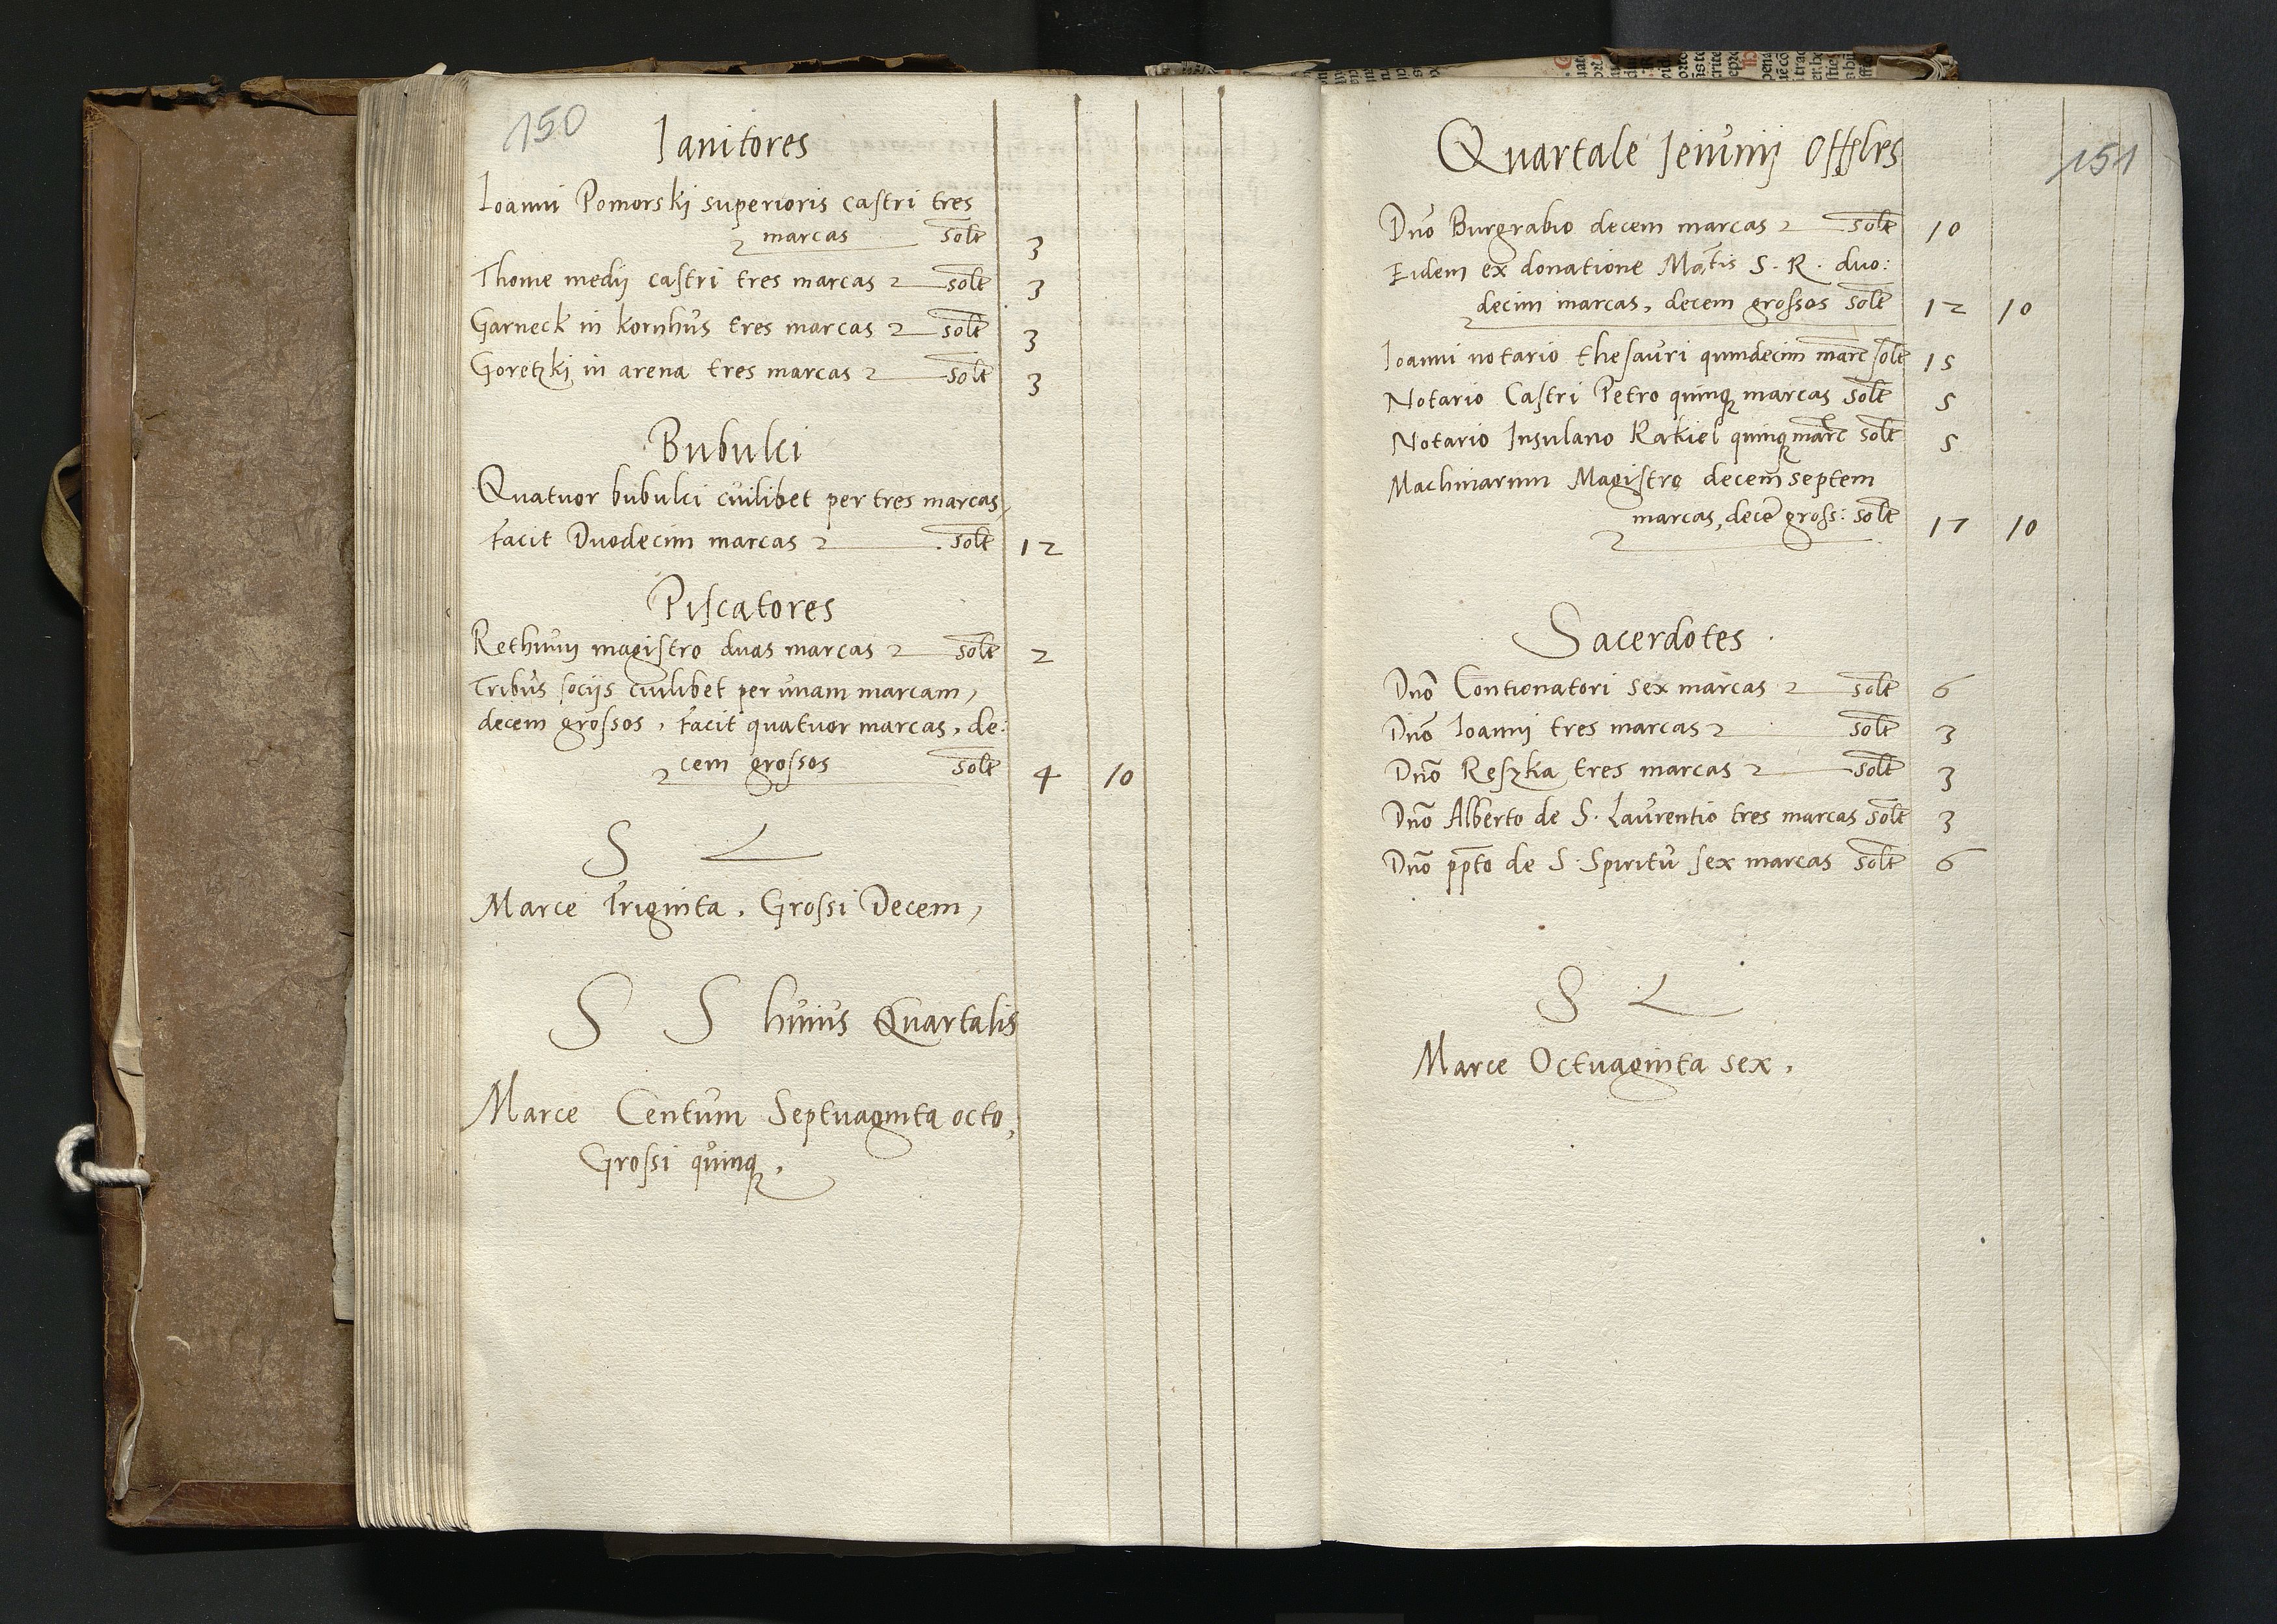 150
Ianitores
Ioanni Pomorskj superioris castri tres
marcas solt 3
Thome medij castri tres marcas solt 3
Garneck in kornhus tres marcas solt 3
Goretzki in arena tres marcas solt 3
Bubulci
Quatuor bubulci cuilibet per tres marcas,
facit Duodecim marcas solt 12
Piscatores
magistro duas marcas solt 2
Tribus socijs cuilibet per unam marcam,
decem grossos, facit quatuor marcas, de:
cem grossos solt 4 10
S L
Marce Triginta. Grossi Decem,
S S huius Quartalis
Marce Centum Septuaginta octo,
Grossi quinq.
151
Quartale Ieiunij Offles
Dno Burgrabio decem marcas solt 10
Eidem ex donatione Matis S. R. duo:
decim marcas, decem grossos solt 12 10
Ioanni notario thesauri quindecim marc solt 15
Notario Castri Petro quinq marcas solt 5
Notario Insulano Rakiel quinq marc solt 5
Machinarum Magistro decem septem
marcas, dece gross: solt 17 10
Sacerdotes
Dno Contionatori sex marcas solt 6
Dno Ioannj tres marcas solt 3
Dno Reszka tres marcas solt 3
Dno Alberto de S. Laurentio tres marcas solt 3
Dno ppto de S. Spiritu sex marcas solt 6
S L
Marce Octuaginta sex.